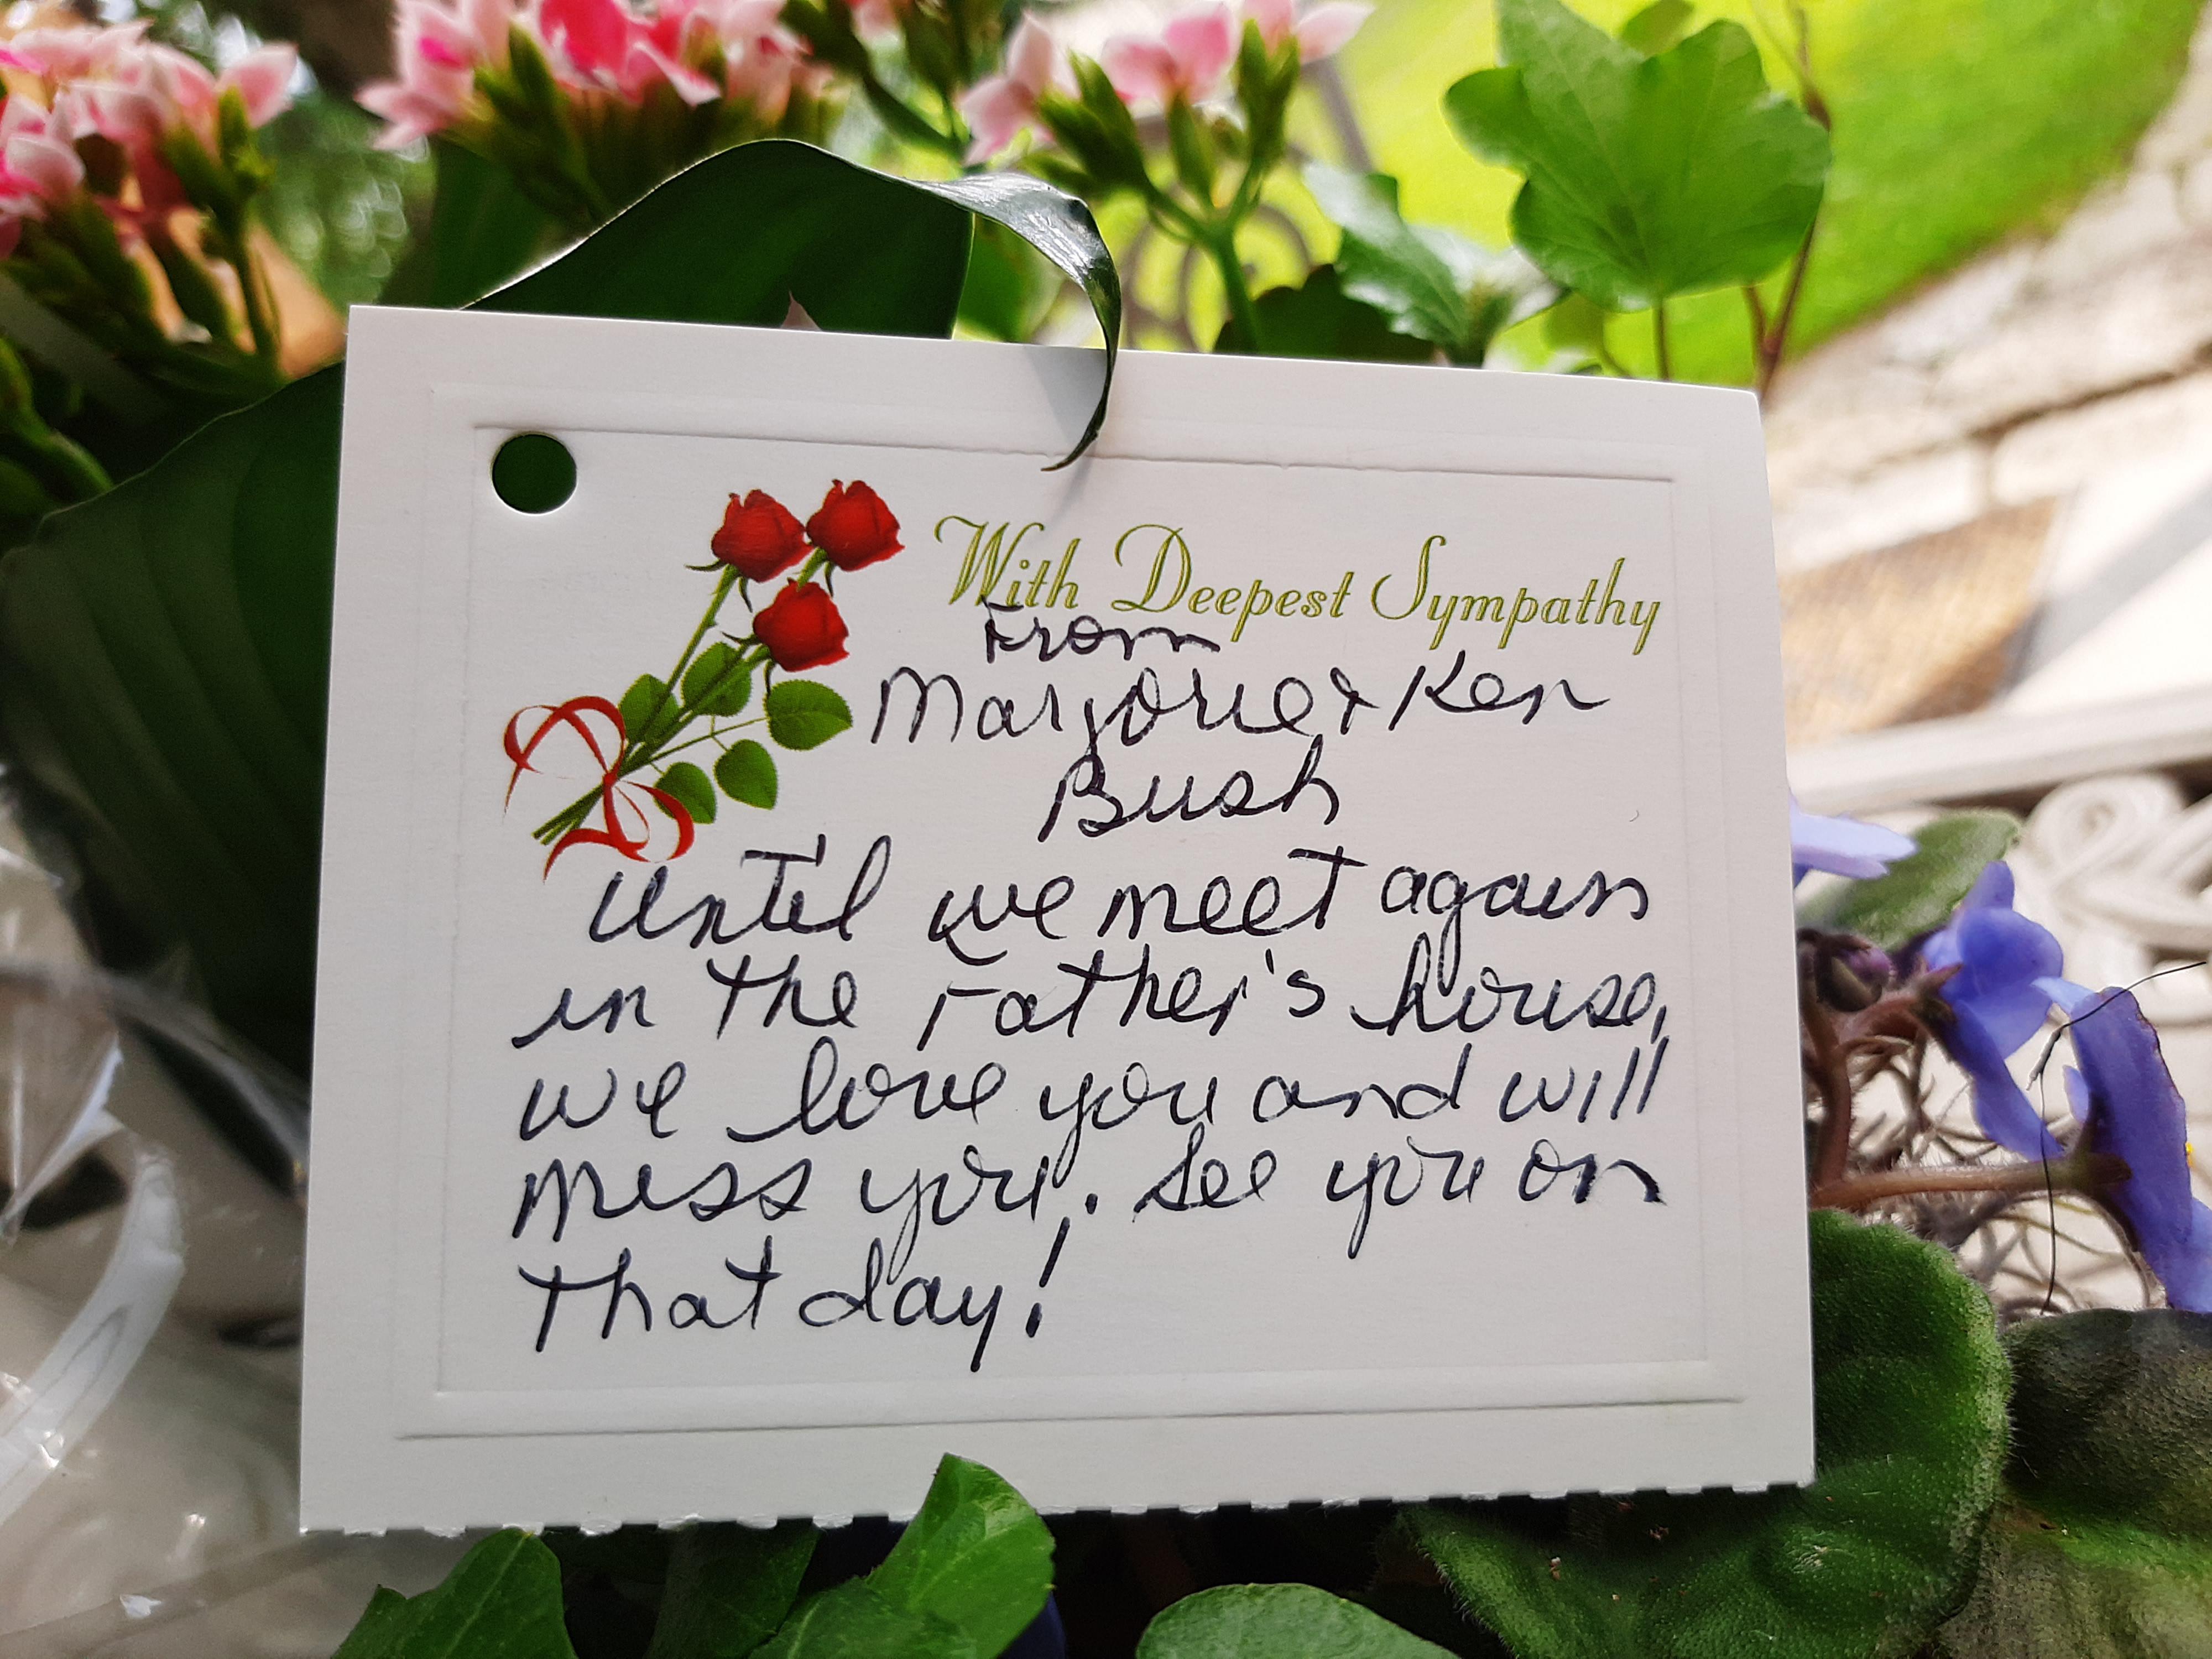 With Deepest Sympathy
From
Marjorie & Ken
Bush
Until we meet again
in the Father's house,
we love you and will
miss you. See you on
that day!